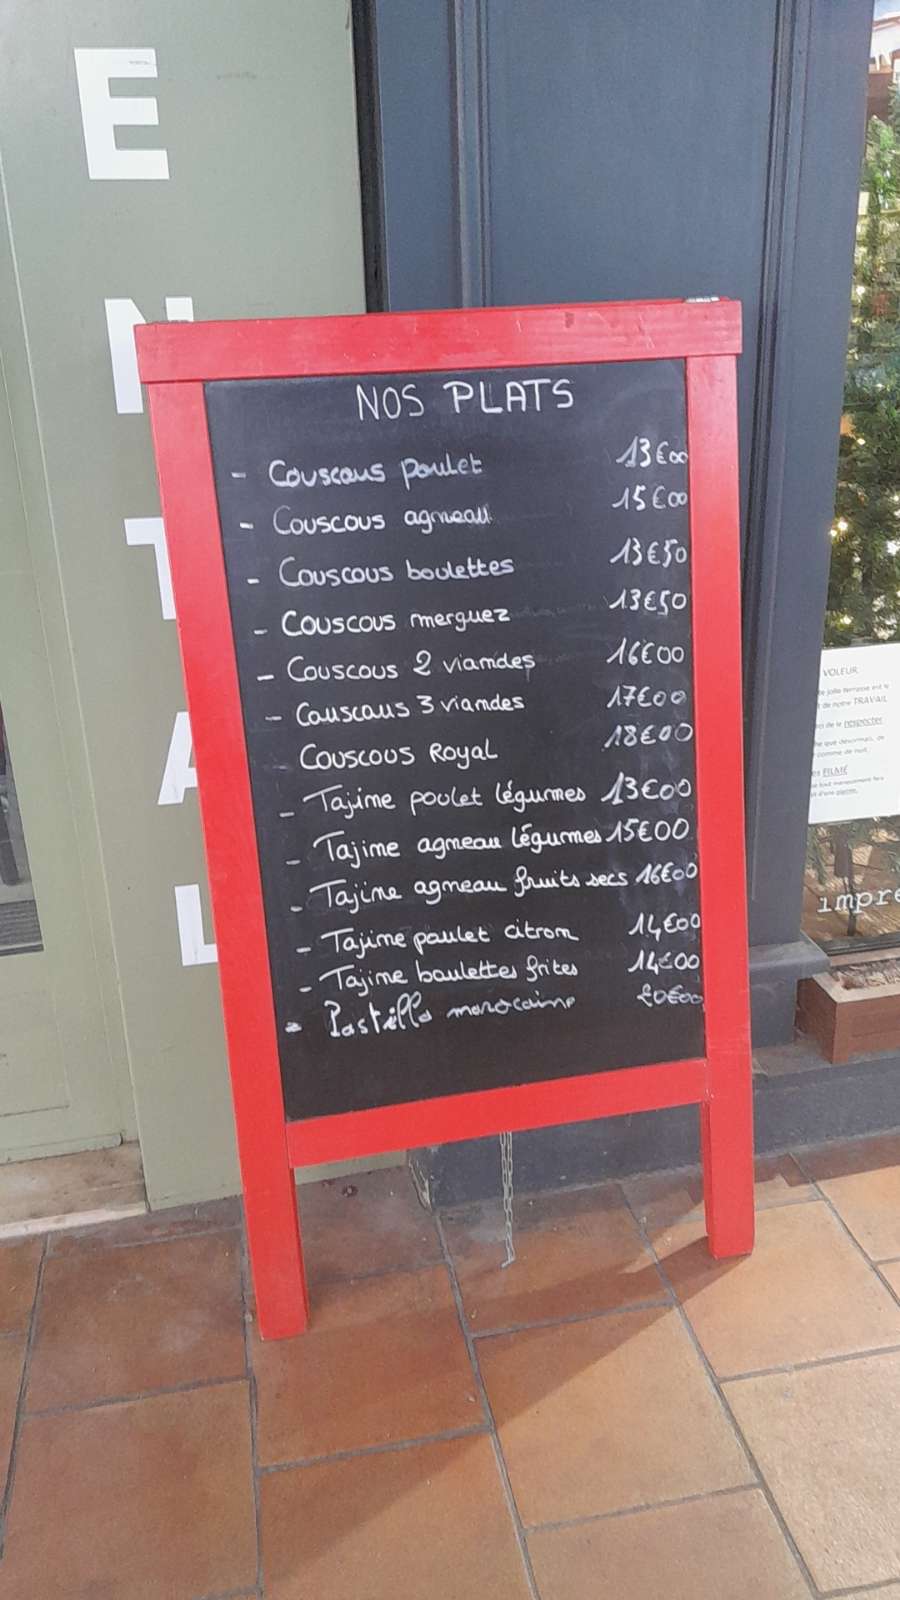 ENTAL
NOS PLATS
- Couscous poulet 13€00
- Couscous agneau 15€00
- Couscous boulettes 13€50
- Couscous merguez 13€50
- Couscous 2 viandes 16€00
- Couscous 3 viandes 17€00
Couscous Royal 18€00
- Tajine poulet légumes 13€00
- Tajine agneau légumes 15€00
- Tajine agneau fruits secs 16€00
- Tajine poulet citron 14€00
- Tajine boulettes frites 14€00
- Pastilla marocaine 20€00
VOLEUR
jolie terrasse est le
de notre TRAVAIL
de la respecter
que désormais, de
comme de nuit,
FILMÉ
impre